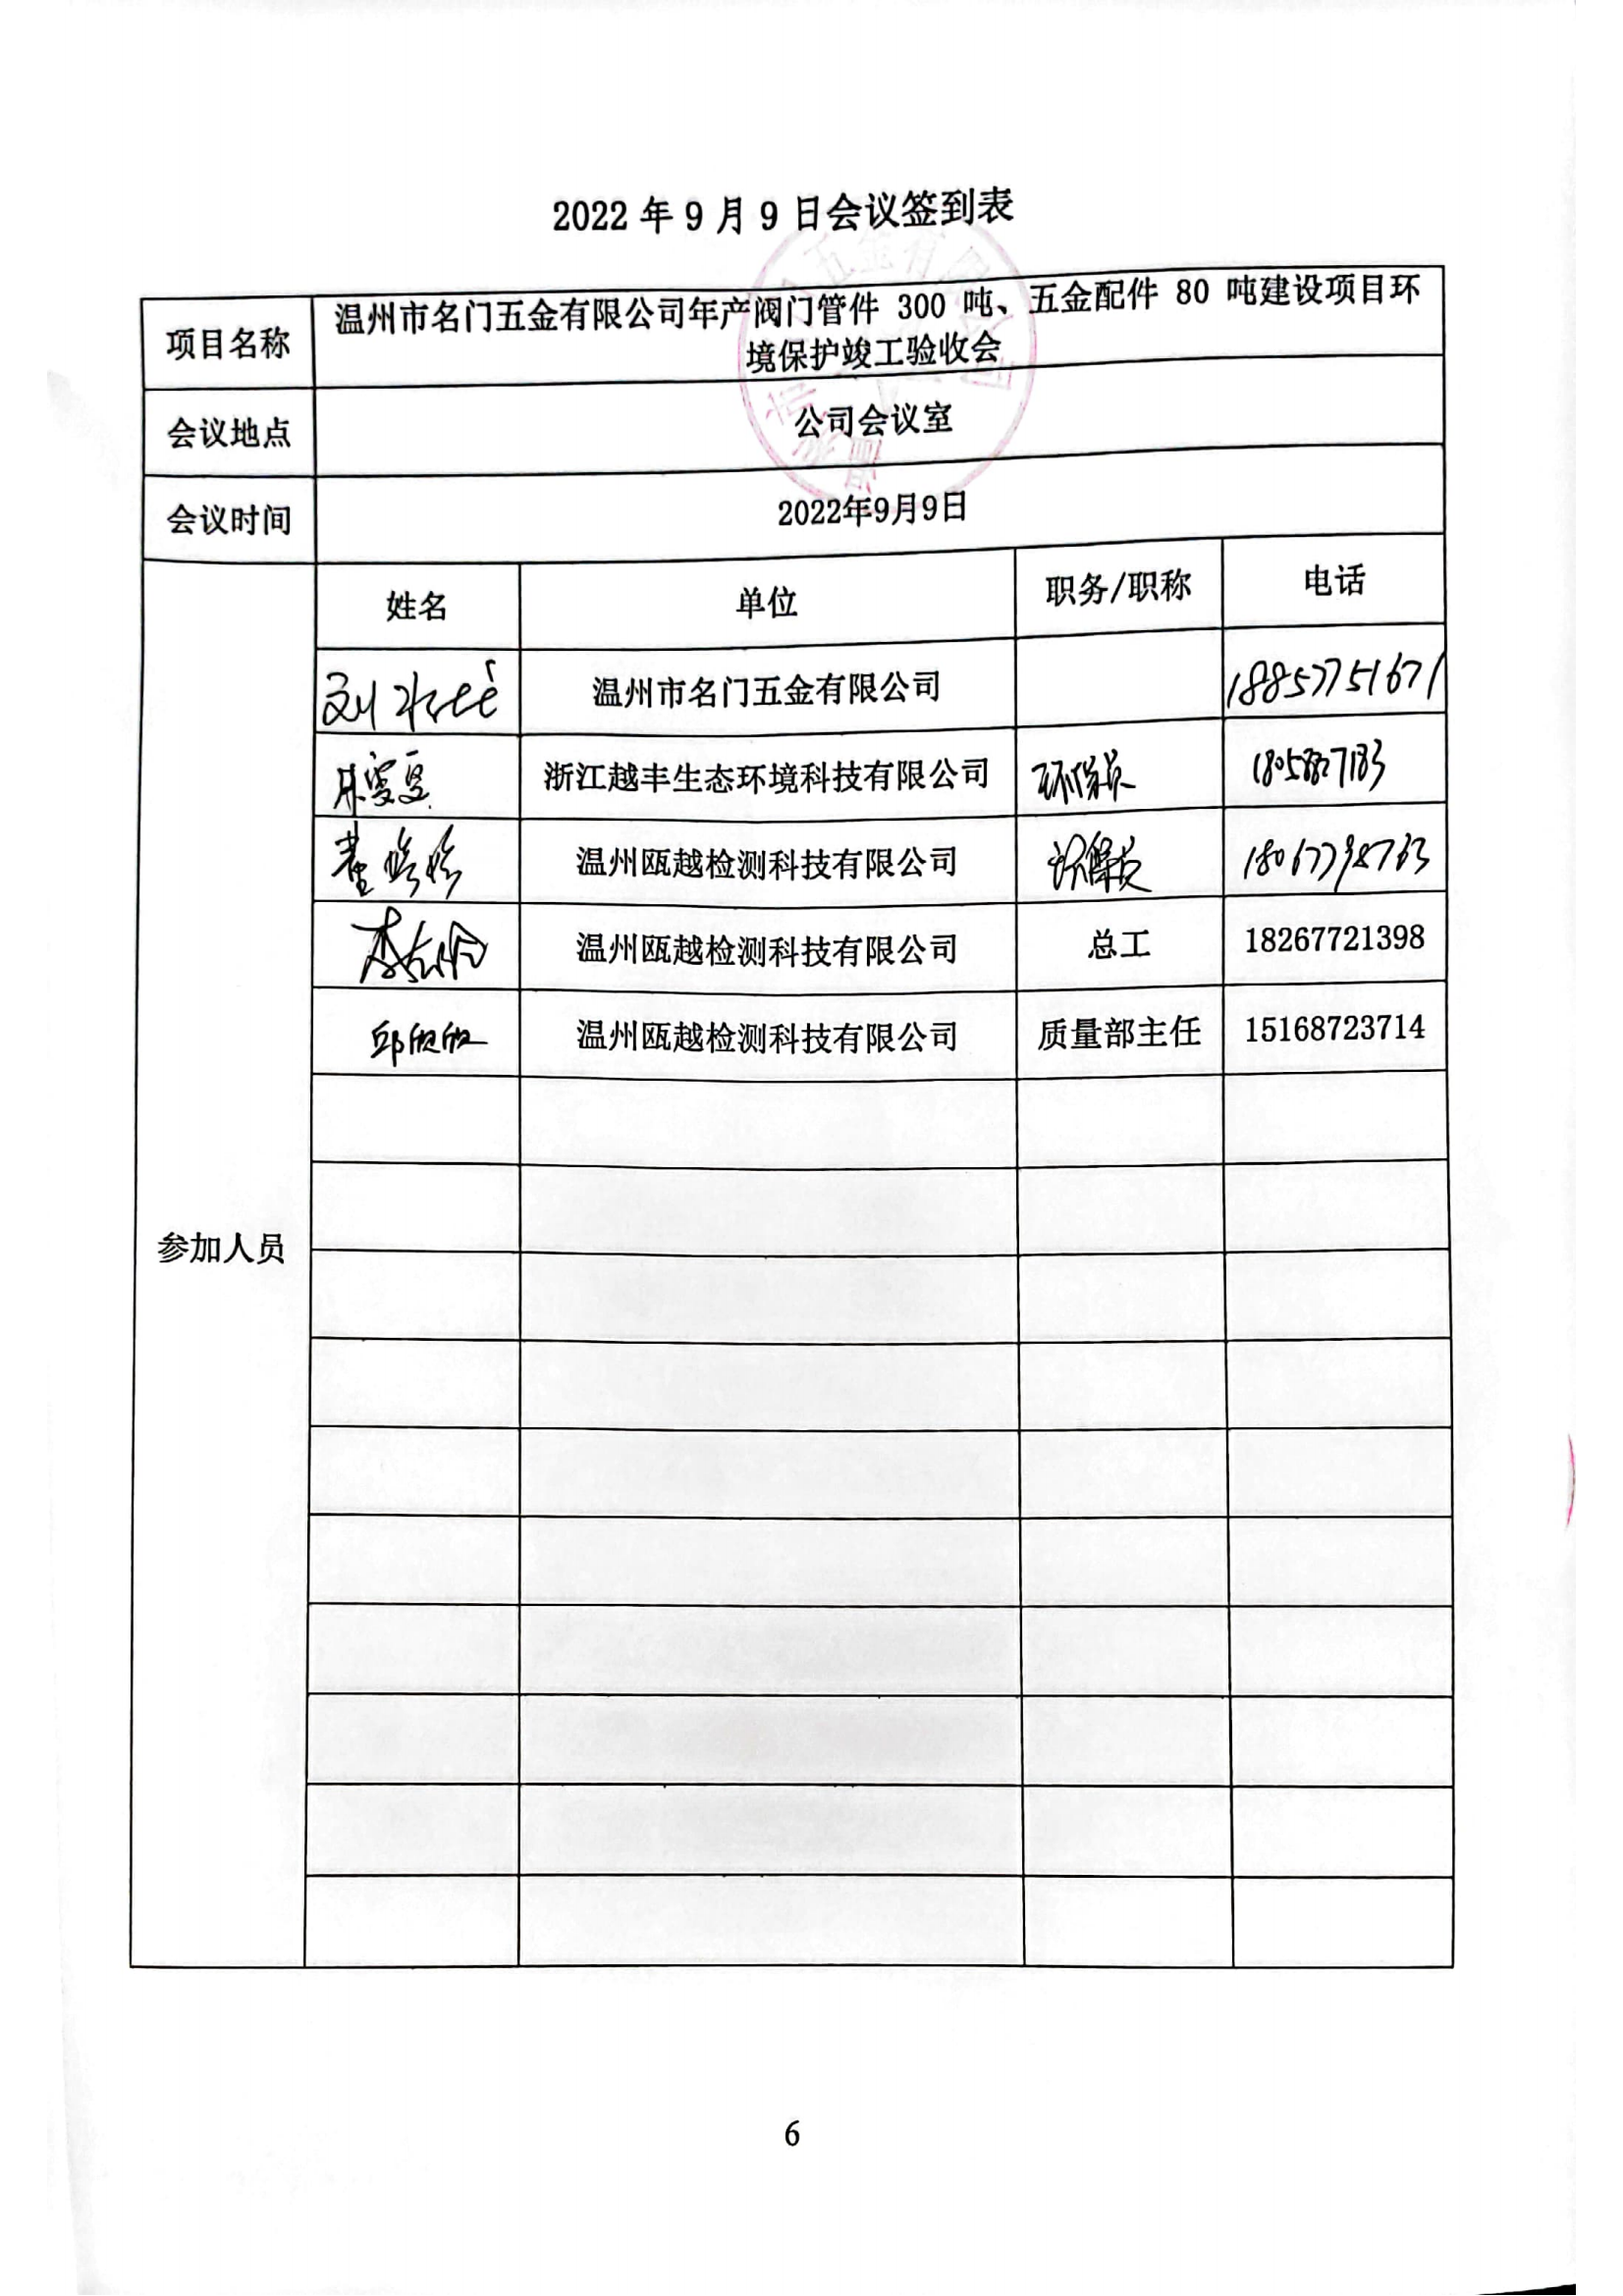 2022 年 9 月 9 日会议签到表
项目名称
温州市名门五金有限公司年产阀门管件 300 吨、五金配件 80 吨建设项目环
境保护竣工验收会
会议地点
公司会议室
会议时间
2022年9月9日
参加人员
姓名 单位 职务/职称 电话
刘 温州市名门五金有限公司 18857751671
浙江越丰生态环境科技有限公司
温州瓯越检测科技有限公司
李 温州瓯越检测科技有限公司 总工 18267721398
邱欣欣 温州瓯越检测科技有限公司 质量部主任 15168723714
6